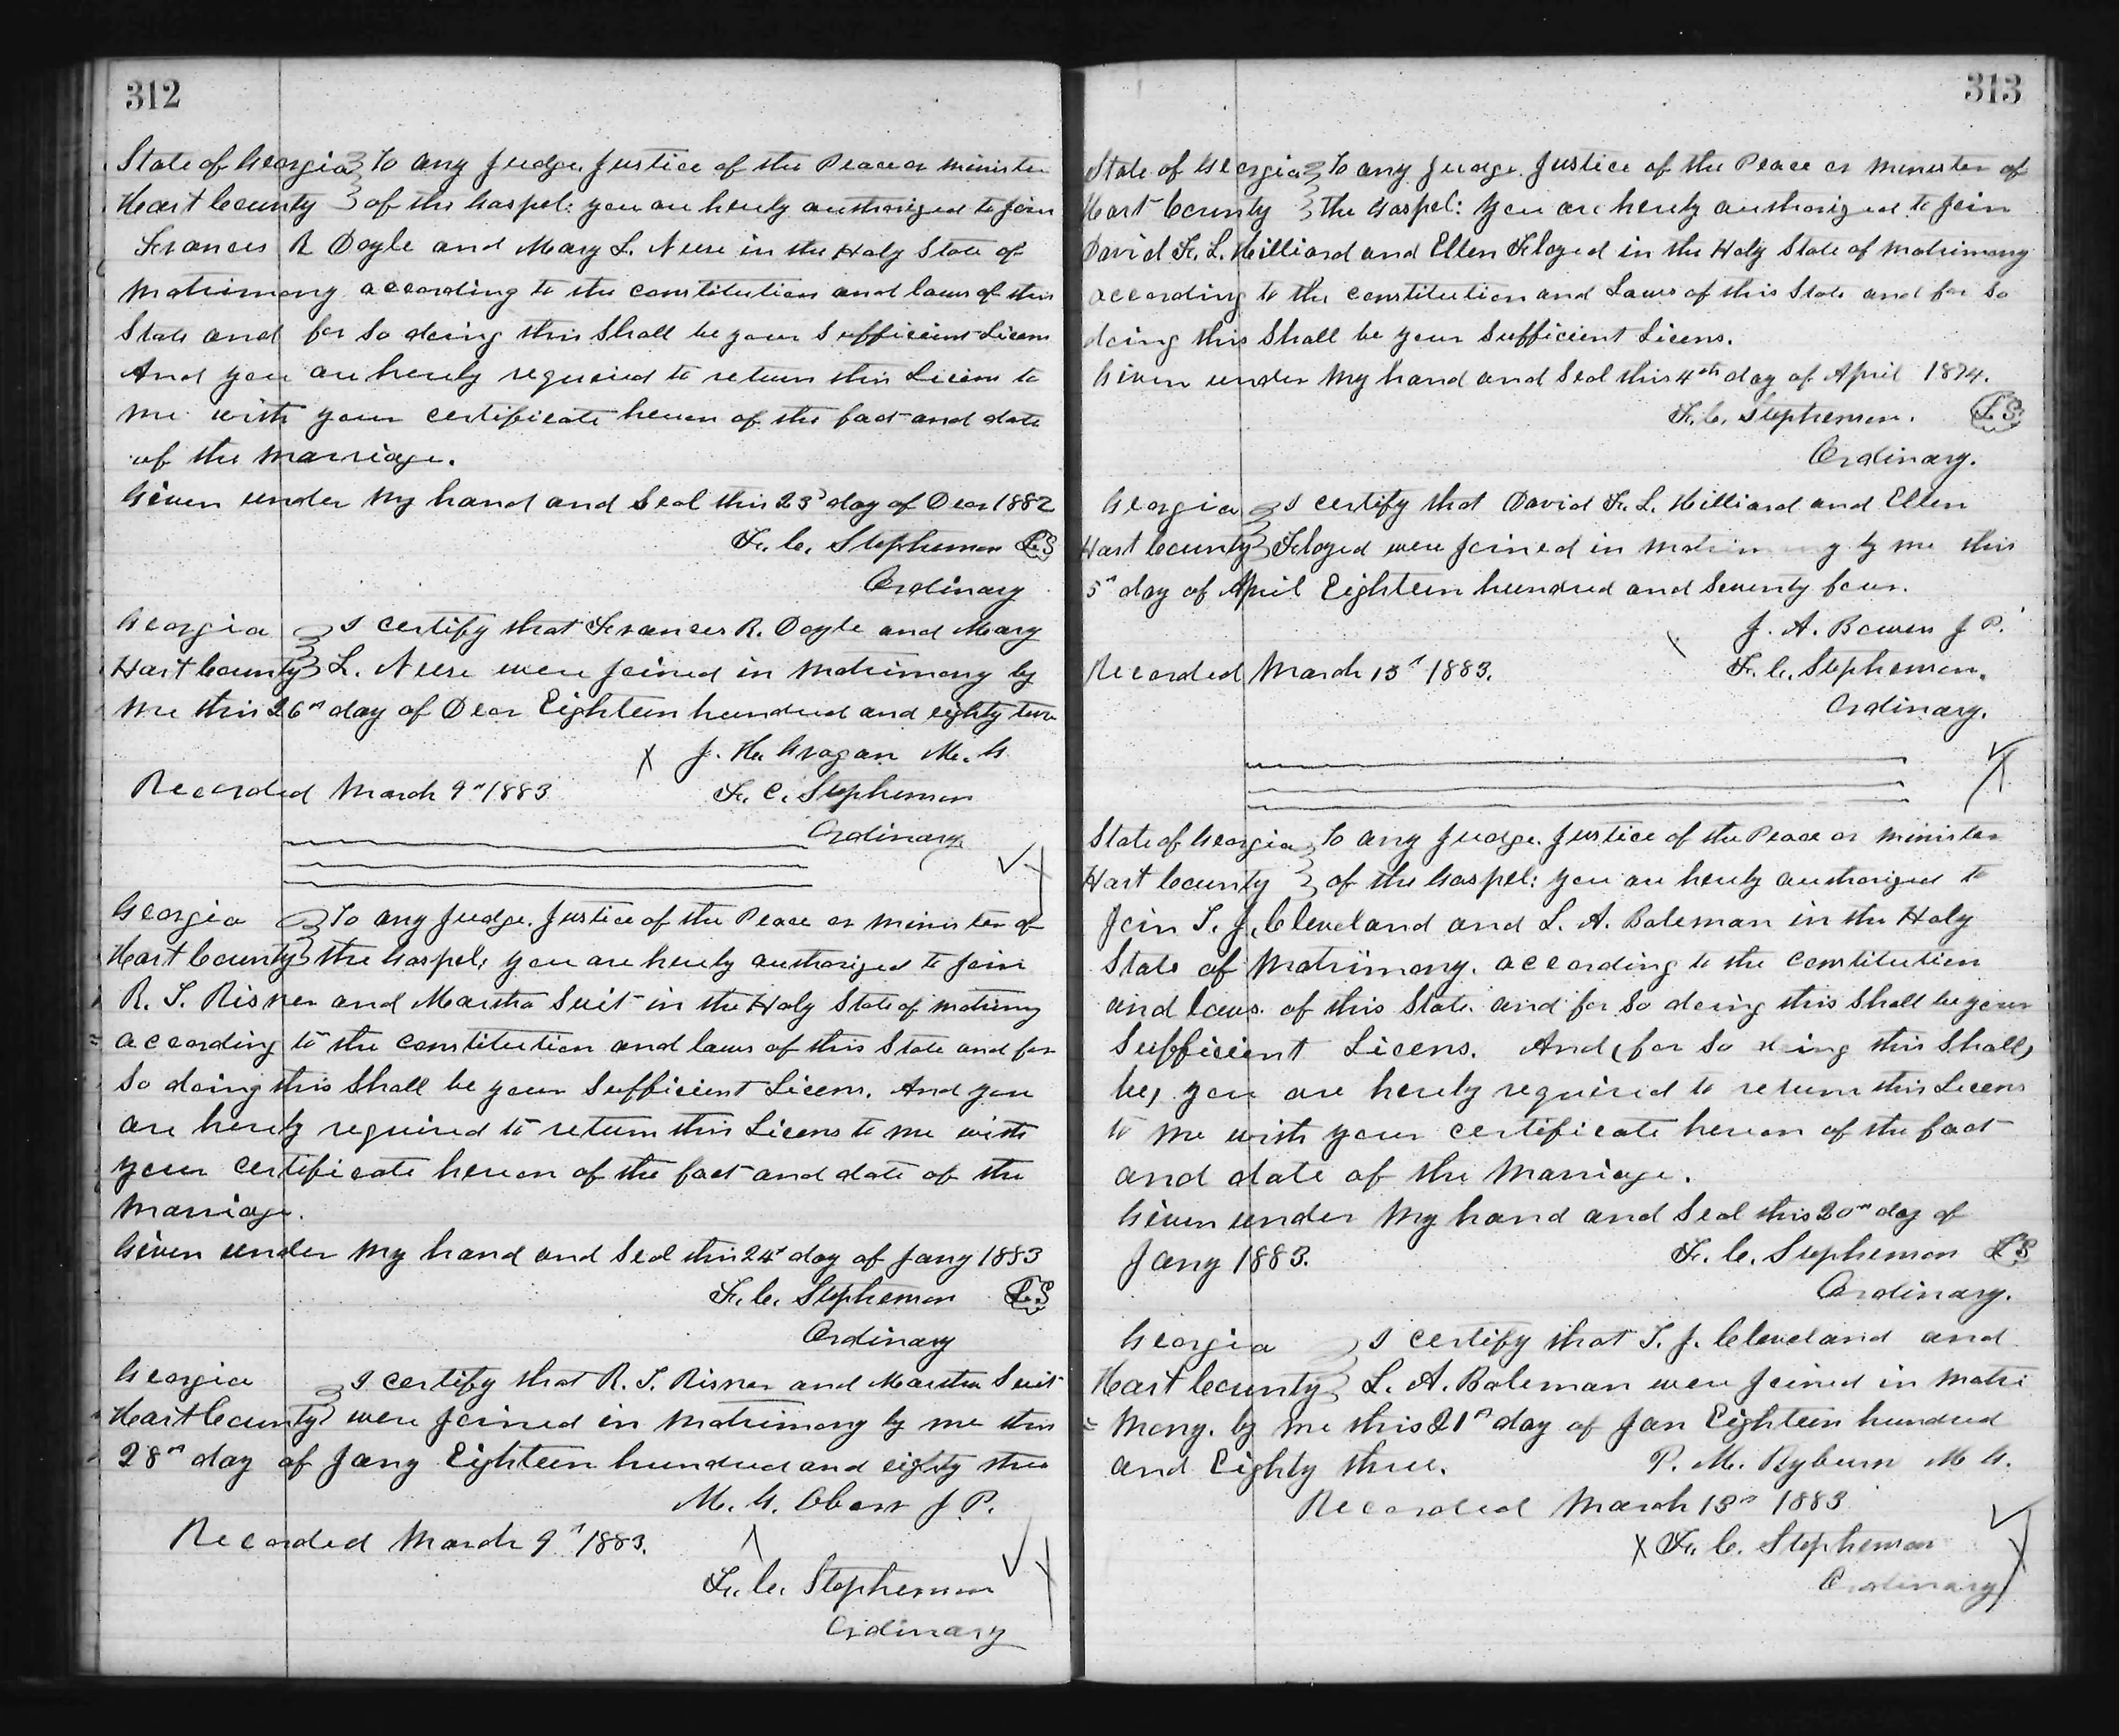 312
State of Georgia To any Judge, Justice of the Peace or minister
Hart County of the Gospel: you are hereby authorized to join
Frances R Doyle and Mary L. Neese in the Holy State of
matrimony according to the constitution and laws of this
State and for so doing this Shall be your Sufficient Licens
And you are hereby required to return this Licens to
me with your certificate hereon of the fact and date
of the marriage.
Given under my hand and Seal this 23d day of Decr 1882
F. C. Stephenson LS
Ordinary
Georgia I certify that Frances R. Doyle and Mary
Hart County L. Neese were joined in matrimony by
me this 26th day of Decr Eighteen hundred and eighty two
X J. H. Grogan M. G.
Recorded March 9th 1883 F. C. Stephenson
Ordinary
Georgia To any Judge, Justice of the Peace or minister of
Hart County the Gospel, you are hereby authorized to join
R. T. Risner and Martha Suit in the Holy State of matrimy
according to the constitution and laws of this State and for
So doing this Shall be your Sufficient Licens. And you
are hereby required to return this Licens to me with
your certificate hereon of the fact and date of the
marriage.
Given under my hand and Seal this 24th day of Jany 1883
F. C. Stephenson LS
Ordinary
Georgia I certify that R. T. Risner and Martha Suit
Hart County were joined in matrimony by me this
28th day of Jany Eighteen hundred and eighty three
M. G. J. P.
Recorded March 9th 1883.
F. C. Stephenson
Ordinary
313
State of Georgia To any Judge, Justice of the Peace or minister of
Hart County the Gospel: you are hereby authorized to join
David F. L. Hilliard and Ellen Floyed in the Holy State of matrimony
according to the constitution and Laws of this State and for So
doing this Shall be your Sufficient Licens.
Given under my hand and Seal this 4th day of April 1874.
F. C. Stephenson. L.S.
Ordinary.
Georgia I certify that David F. L. Hilliard and Ellen
Hart County Floyed were joined in matrimony by me this
5th day of April Eighteen hundred and Seventy four.
J. A. Bowers J P.
Recorded March 13th 1883. F. C. Stephenson.
Ordinary.
State of Georgia To any Judge, Justice of the Peace or minister
Hart County of the Gospel: you are hereby authorized to
join T. J. Cleveland and L. A. Boleman in the Holy
State of Matrimony, according to the constitution
and laws of this State. and for So doing this Shall be your
Sufficient Licens. And (for So doing this Shall,
be) you are hereby required to return this Licens
to me with your certificate hereon of the fact
and date of the marriage.
Given under my hand and Seal this 20th day of
Jany 1883. F. C. Stephenson LS
Ordinary.
Georgia I certify that T. J. Cleveland and
Hart County L. A. Boleman were joined in matri
= mony. by me this 21st day of Jan Eighteen hundred
and Eighty three. P. M. Ryburn M G.
Recorded March 13th 1883
X F. C. Stephenson
Ordinary